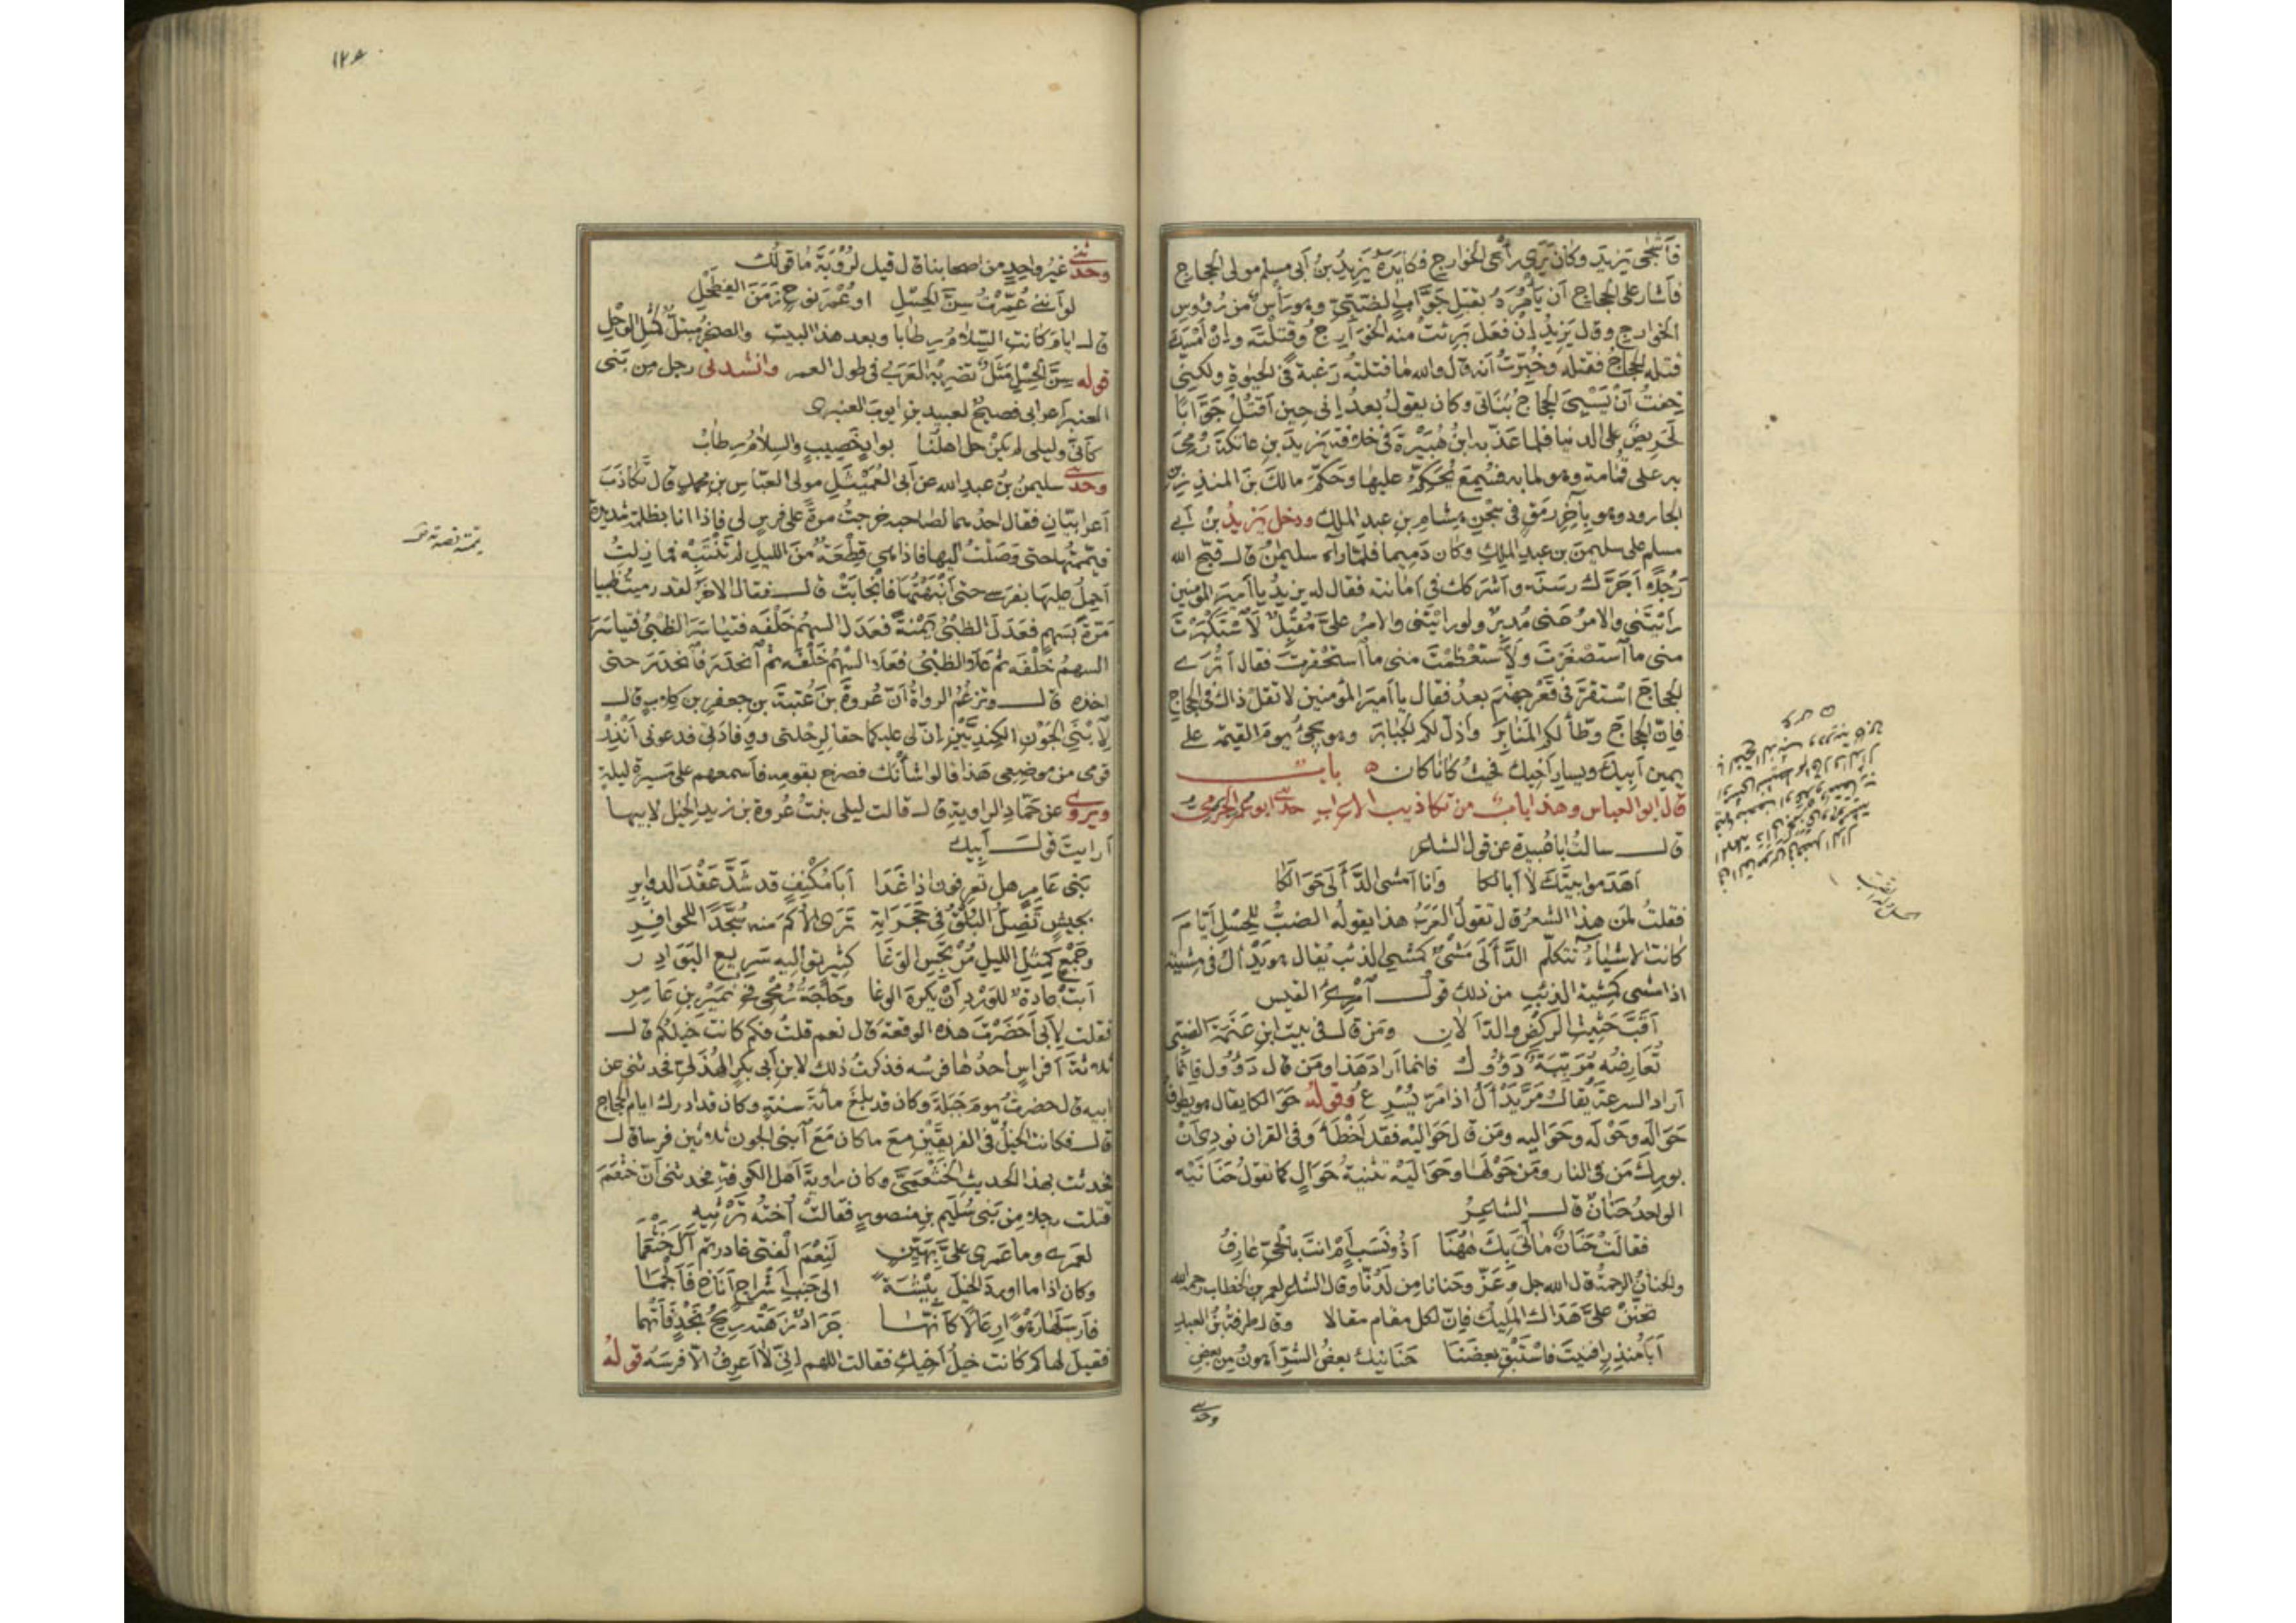 فَأَشْجَى يزيدَ وكان يَرَى رأىَ الخوارج فكايدَهُ يزيدُ بنُ أبى مسلم مولى الحجاج
فأشار على الحجاج أن يأمُرَهُ بقتلِ جَوَّابٍ الضَّبّى وهو رأس من رؤوس
الخوارج وقال يزيدُ إن فعَل برئت منه الخوارجُ وقتلَتْه وإن أمسَكَ
قتله الحجاجُ فقتله وخُبِّرتُ أنه قال والله ما قتلتُه رغبةً فى الحيوة ولكنى
خفتُ أن يَسْبِىَ الحجاجُ بناتى وكان يقولُ بعدُ إنى حين أقتلُ جَوَّابًا
لحريصٌ على الدنيا فلما عذّبه ابنُ هُبَيْرَةَ فى خلافة يزيدَ بن عاتكة رُمِىَ
به على قُمامة وهو لما به فسُمِع يُحَكِّمُ عليها وحَكَّمَ مالكَ بنَ المنذر بن
الجارود وهو بآخِرِ رَمَقٍ فى سجن هشام بن عبد الملك ودخل يزيدُ بنُ أبى
مسلم على سليمنَ بن عبد الملك وكان دَمِيما فلما رآه سليمنُ قال قبّح الله
رجُلا أجَرَّك رسَنَه وأشركك فى أمانته فقال له يزيدُ يا أميرَ المؤمنين
رأيتَنى والامرُ عنى مُدبِرٌ ولو رأيتَنى والامرُ علىّ مُقبِلٌ لاستكبرتَ
منى ما استصغرتَ ولاستعظمتَ منى ما استحقرتَ فقال أتُرَى
الحجاجَ استقرّ فى قَعْرِ جهنّمَ بعدُ فقال يا أميرَ المؤمنين لا تقل ذاك فى الحجاج
فإنّ الحجاجَ وطّأ لكم المنابرَ وأذلّ لكم الجبابرَ وهو يجئ يومَ القيمة على
يمين أبيك ويسار أخيك فحيثُ كانا كان ه بابٌ
قال ابو العباس وهذا بابٌ من تكاذيب الاعراب حدثنى ابو عمر الجرمى
قال سالتُ أبا عُبيدة عن قول الشاعر
أهَدَموا بيتَك لا أبا لكا وأنا أمشى الدَّأَلَى حَوَالَكا
فقلتُ لمن هذا الشعرُ قال تقولُ العَرَبُ هذا يقولُه الضبُّ للحِسْلِ أيّامَ
كانت الاشياءُ تتكلّم الدَّأَلَى مَشْىٌ كمشى الذئب يُقال هو يَدْأَلُ فى مِشيته
اذا مشى كمِشية الذئب من ذلك قولُ امرئ القيس
أقَبَّ حَثيثِ الركضِ والدَّأَلانِ ومَن قال فى بيت ابنِ عَنَمَةَ الضبّى
تُعارِضُه مُرَبَّبَةٌ دَؤُولُ فانما أراد هذا ومَن قال دَؤُول فإنما
أراد السرعةَ يُقال مَرَّ يَدْأَلُ اذا مَرَّ يُسرِع وقولُه حَوَالَكا يقال هو يطوف
حَوَالَه وحَوْلَه وحَوَالَيه ومَن قال حَوَالِيه فقد أخطأ وفى القران نودِىَ أنْ
بورِكَ مَن فى النار ومَن حَوْلَها وحَوَالَيْه تثنيةُ حَوَالٍ كما تقولُ حَنَانَيْه
الواحدُ حَنانٌ قال الشاعِرُ
فقالَتْ حَنَانٌ ما أتى بك هٰهُنا أذُو نَسَبٍ أم أنتَ بالحىّ عارِفُ
والحنانُ الرحمةُ قال الله جل وعَزّ وحَنانا مِن لَدُنّا وقال الشاعر لعمر بن الخطاب رحمه الله
تحنّنْ علىّ هَداك المليكُ فإنّ لكل مقام مقالا وقال طرفةُ بنُ العبد
أبا مُنذِرٍ أفنيتَ فاستَبْقِ بعضَنا حَنَانَيْك بعضُ الشرّ أهونُ مِن بعضِ
وحدثنى
١٢٤
وحدثنى غيرُ واحدٍ من اصحابنا قال قيل لرُؤبَةَ ما قولُك
لو أنّنى عُمِّرتُ سِنَّ الحِسْلِ او عُمْرَ نوحٍ زَمَنَ الفِطَحْلِ
قال ايامَ كانت السِّلامُ رِطابا وبعد هذا البيت والصخرُ مُبتلٌّ كمثل الوَحْلِ
قوله سِنَّ الحِسْلِ مَثَلٌ تضربُه العَرَبُ فى طول العمر وانشدنى رجل من بَنى
العنبر أعرابى فصيحٌ لعبيد بن ايوبَ العنبرى
كأنّى وليلى لم يكُنْ حلّ أهلُنا بوادٍ خَصيبٍ والسلامُ رطابُ
وحدثنى سليمنُ بنُ عبدِ الله عن أبى العَمَيْثَلِ مولى العبّاس بن محمد قال تكاذَبَ
أعرابيّان فقال احدُهما لصاحبه خرجتُ مرةً على فرس لى فإذا انا بظلمة شديدة
فيَمّمتُها حتى وَصَلْتُ اليها فاذا هى قِطْعَةٌ مِنَ الليل لم تَنْتَبِهْ فما زلتُ
أحمِلُ عليها بفرسى حتى أنبهتُها فانجابَتْ قال فقال الآخَرُ لقد رميتُ ظبيا
مَرّةً بسهمٍ فعَدَلَ الظبىُ يَمْنةً فعَدَل السهمُ خَلْفَه فتياسَرَ الظبىُ فتياسَرَ
السهمُ خَلْفَه ثم عَلا الظبىُ فعَلا السهمُ خَلْفَه ثم انحَدَرَ فانحدَرَ حتى
اخذه قال وتزعُمُ الرواةُ أنّ عُروةَ بنَ عُتبةَ بنِ جعفرِ بنِ كلابٍ قال
لِابْنَىِ الجَوْنِ الكِنديَّيْنِ إنّ لى عليكما حقا لرِحلتى ووِفادَتى فدعونى أُنذِرْ
قومى من موضعى هذا فقالوا شأنَك فصرخ بقومه فأسمعهم على مسيرة ليلة
ويروى عن حَمّادٍ الراوية قال قالت ليلى بنتُ عُروةَ بن زيد الخيل لابيها
أرايتَ قولَ أبيك
بَنى عامِرٍ هل تعرِفونَ إذا غَدا أبا مُكْنِفٍ قد شَدَّ عَقْدَ الدوابرِ
بجيشٍ تَضِلُّ البُلْقُ فى حَجَرَاتِه تَرَى الأُكمَ منه سُجَّدًا للحوافِرِ
وجَمْعٍ كمِثْلِ الليلِ مُرتجِسِ الوَغا كثيرٍ تواليه سَريعِ البَوَادِر
أبَتْ عادةٌ للوَرْدِ أنْ يكرهَ الوغا وحاجةُ رُمحى فى نُمَيرِ بنِ عامِرِ
فقلت لأبى أحَضَرْتَ هذه الوقعةَ قال نعم قلتُ فكم كانت خيلكم قال
ثلاثةَ أفراسٍ أحدُها فرسُه فذكرتُ ذلك لابنِ أبى بكر الهُذَلىّ فحدثنى عن
ابيه قال حضرتُ يومَ جَبَلةَ وكان قد بلغ مائةَ سنةٍ وكان قد ادرك ايام الحجاج
قال فكانت الخيلُ فى الفريقَيْنِ معَ ما كان مَعَ ابنى الجون ثلاثين فرسا قال
فحدثت بهذا الحديث الخَثْعَمِىَّ وكان راويةَ أهل الكوفة فحدثنى أنّ خَثْعَمَ
قتلت رجلا مِن بَنى سُلَيم بن منصورٍ فقالت أختُه تَرثيه
لعَمرى وما عَمرى علىّ بِهَيّنٍ لَنِعْمَ الفتى غادرتم آلَ خَثْعَما
وكان اذا ما اوردَ الخيلَ بيشَةً الى جَنبِ أشراجٍ أناخ فألجَمَا
فأرسلها رَهْوًا رِعالا كأنّها جَرادٌ زَهَتْه ريحُ نَجْدٍ فأتهما
فقيل لها كم كانت خيلُ أخيك فقالت اللهم إنى لا أعرِفُ الّا فرسَه قولُه